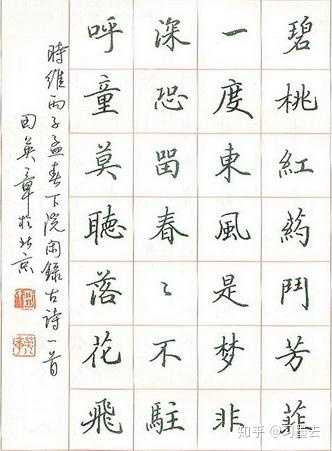 碧桃紅葯鬥芳菲
一度東風是梦非
深恐留春〻不駐
呼童莫聽落花飛
時維丙子孟春下浣闲錄古詩一首
田英章於北京
知乎